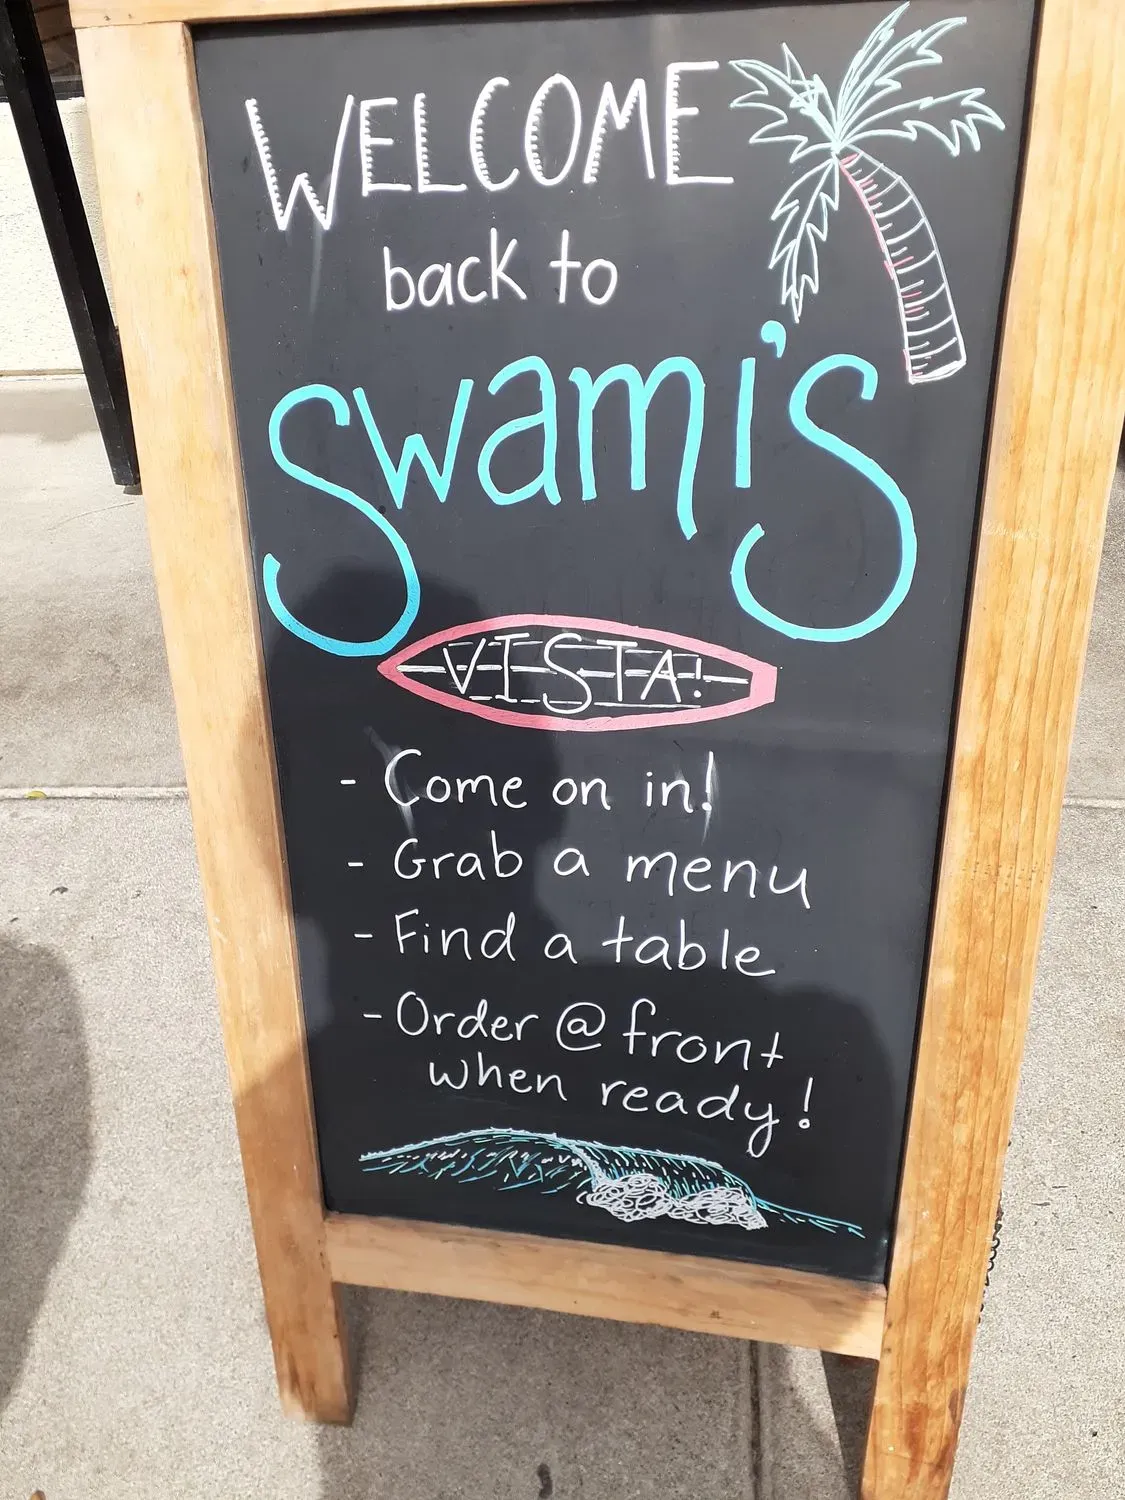 WELCOME
back to
Swami's
VISTA!
- Come on in!
- Grab a menu
- Find a table
- Order @ front
when ready!